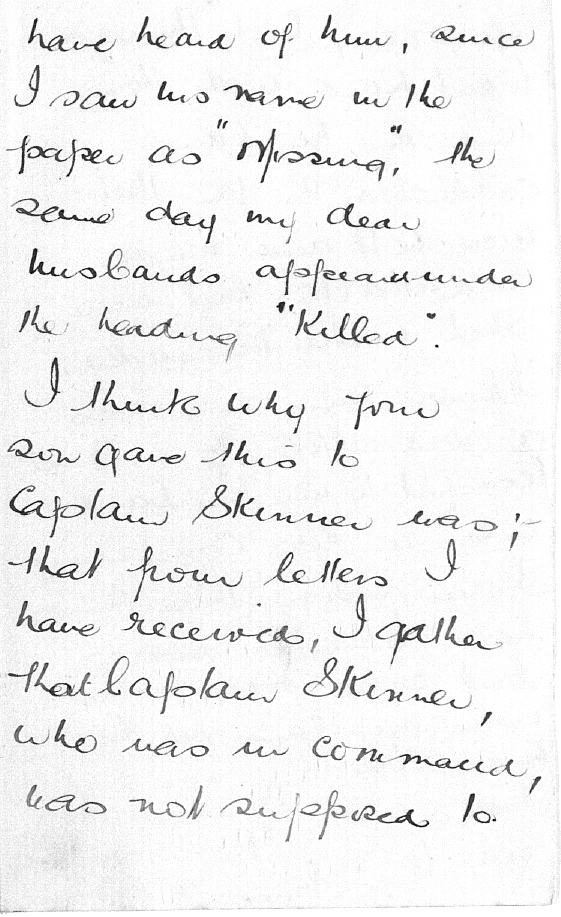 have heard of him, since
I saw his name in the
paper as "Missing", the
same day my dear
husbands appeared under
the heading "Killed".
I think why your
son gave this to
Captain Skinner was;-
that from letters I
have received, I gather
that Captain Skinner,
who was in command,
was not supposed to